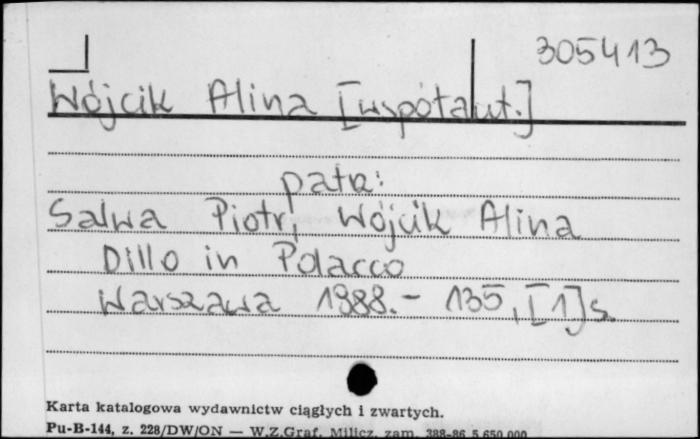 305413
Wójcik Alina [współaut.]
patrz:
Salwa Piotr, Wójcik Alina
Dillo in Polacco
Warszawa 1988.- 135, [1] s.
Karta katalogowa wydawnictw ciągłych i zwartych.
Pu-B-144, z. 228/DW/ON — W.Z.Graf. Milicz, zam. 388-86 5.650.000